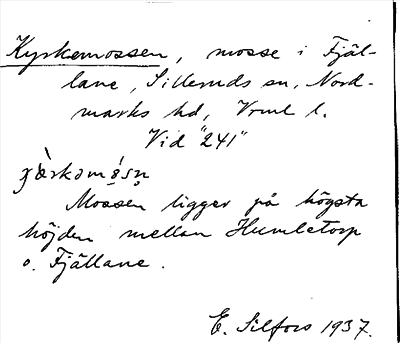 Kyrkemossen, mosse i Fjäl-
lane, Silleruds sn, Nord-
marks hd, Vrml l.
Vid "241"
Mossen ligger på högsta
höjden mellan Humletorp
o. Fjällane.
E. Silfors 1937.